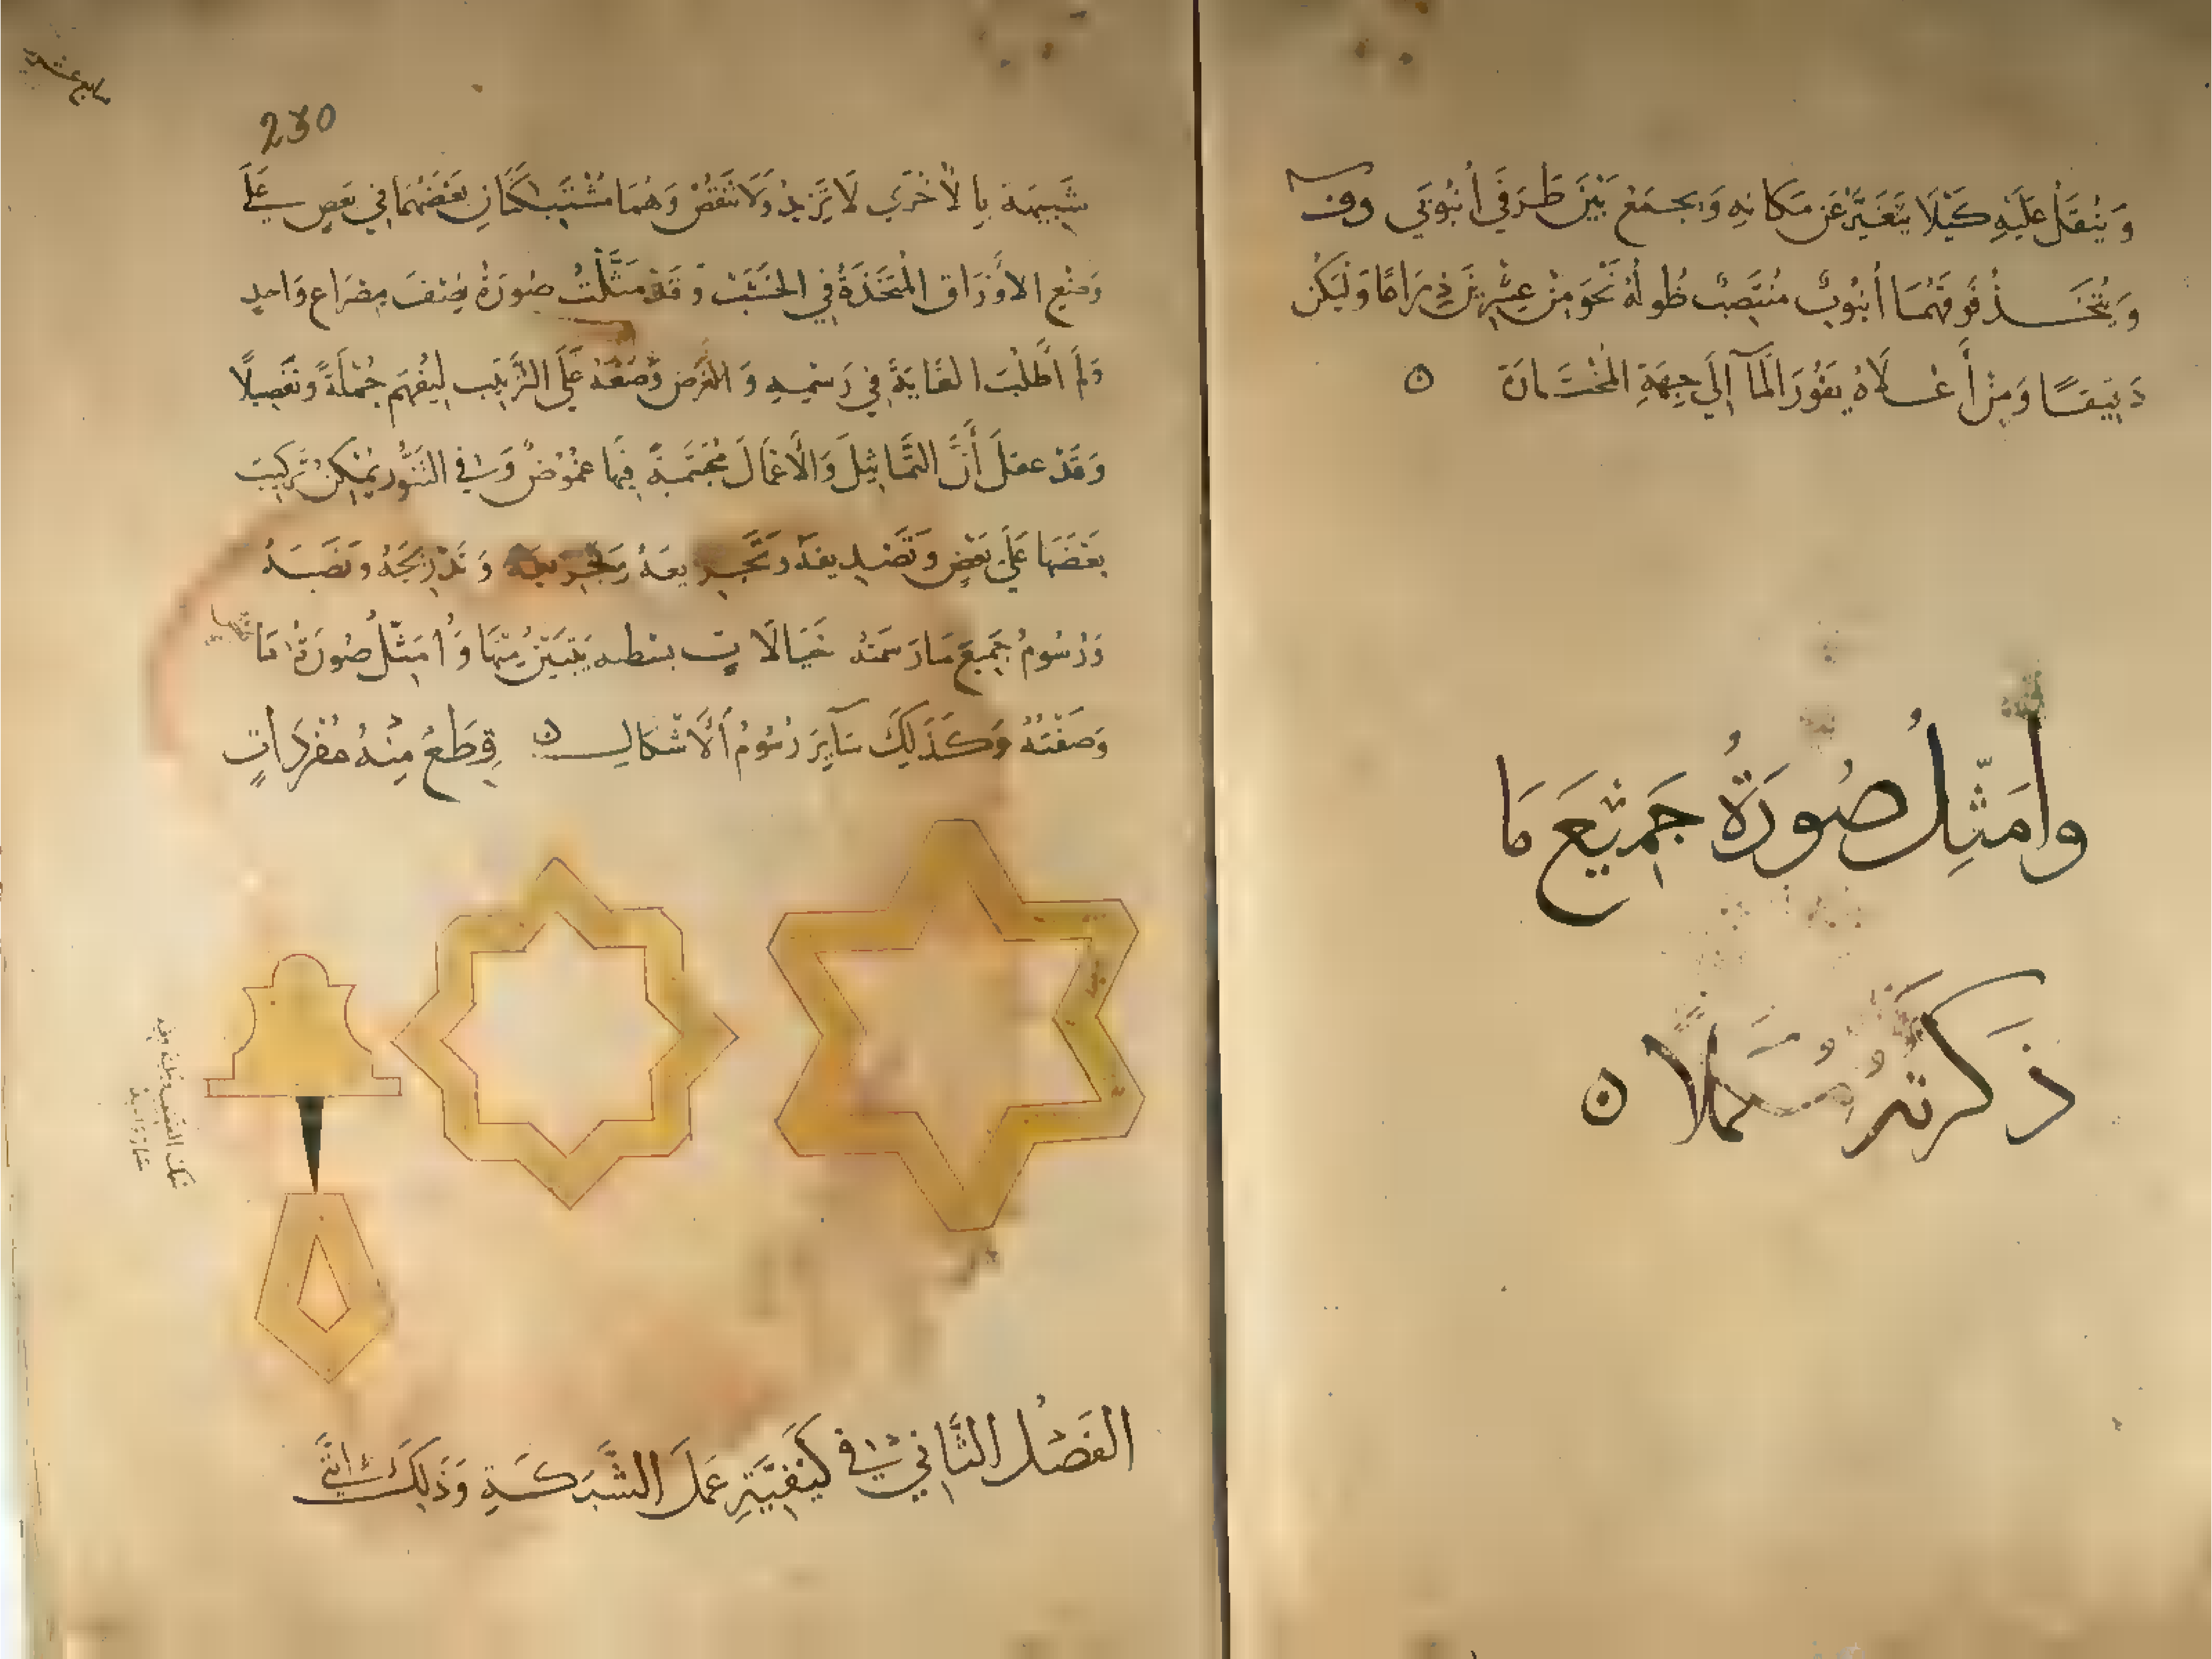 وَيُثْقَلُ عَلَيْهِ كَيْلَا يَتَغَيَّرَ عَنْ مَكَانِهِ وَيَجْمَعُ بَيْنَ طَرَفَيْ أُنْبُوبَيْ
وَيُتَّخَذُ فَوْقَهُمَا أُنْبُوبٌ مُنْتَصِبٌ طُولُهُ نَحْوَ مِنْ عِشْرِينَ ذِرَاعًا وَلْيَكُنْ
دَقِيقًا وَمِنْ أَعْلَاهُ يَفُورُ الْمَآ إِلَى جِهَةِ الْمُخْتَارَةِ ن
وأُمَثِّلُ صُورَةُ جَمِيْعَ مَا
ذَكَرْتُهُ
230
شَبِيهَة بِالْأُخْرَى لَا تَزِيدُ وَلَا تَنْقُصُ وَهُمَا مُشْتَبِكَتَانِ بَعْضُهُمَا فِي بَعْضٍ عَلَى
وَضْعِ الاَوْرَاقِ الْمُتَّخَذَةُ فِي الخَشَبِ وَقَدْ مَثَّلْتُ صُورَةُ نِصْفَ مِصْرَاعٍ وَاحِدٍ
وَلَمْ أَطْلُبِ الغَايَةَ فِي رَسْمِهِ وَالغَرَضِ وَضْعُهُ عَلَى التَّرْتِيبِ لِيُفْهَمَ جُمْلَةً وَتَفْصِيلًا
وَقَدْ عقلَ أَنَّ التَّمَاثِيلَ وَالْأَعْمَالَ مُجْتَمِعَةً فِيهَا غُمُوضٌ وَفِي التَّنَوُّر يُمْكِنُ تَرْكِيبَ
بَعْضَهَا عَلَى بَعْضٍ
وَرُسُومُ جَمِيعَ مَا رَسَمْتُهُ خَيَالَاتٍ يَتَبَيَّنُ مِنْهَا وَأُمَثِّلُ صُورَةُ مَا
وَصَفْتُهُ وَكَذَلِكَ سَآيِرَ رُسُومُ الْأَشْكَالِ ن قِطَعُ مِنْهُ مُفْرَدَاتٍ
الفَصْلُ الثَّانِي فِي كَيْفِيَّةِ عَمَلَ الشَّبَكَةِ وَذَلِكَ